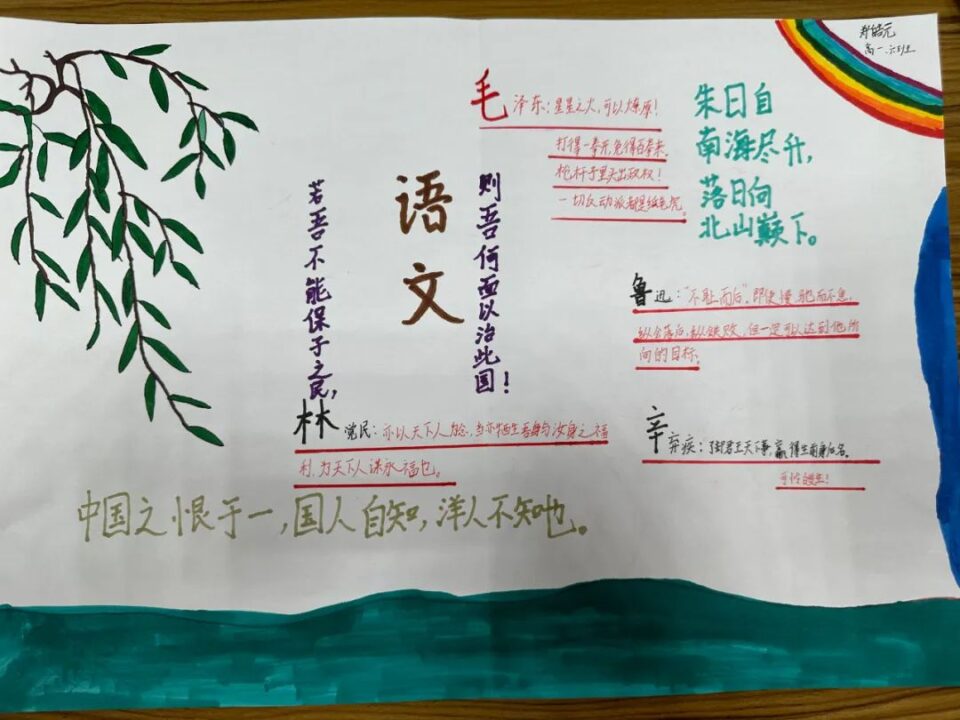 高一.六班
毛泽东:星星之火,可以燎原!
打得一拳开,免得百拳来。
枪杆子里头出政权!
一切反动派都是纸老虎。
朱日自
南海尽升,
落日向
北山巅下。
语文
则吾何面以治此国!
若吾不能保子之民,
鲁迅:“不耻而后”,即使慢,驰而不息,
纵会落后,纵会失败,但一定可以达到他所
向的目标。
林觉民:亦以天下人为念,当亦牺牲吾身与汝身之福
利,为天下人谋永福也。
辛弃疾:了却君王天下事,赢得生前身后名。
可怜白发生!
中国之恨于一,国人自知,洋人不知也。